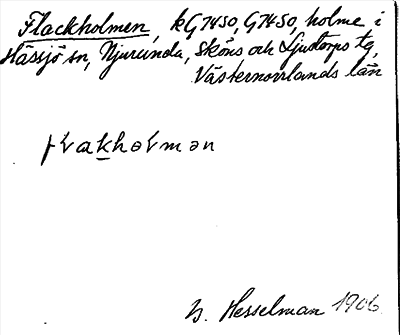 Flackholmen, kG7450, G7450, holme i
Hässjö sn, Njurunda, Sköns och Ljustorps tg,
Västernorrlands län
flakholmən
B. Hesselman 1906